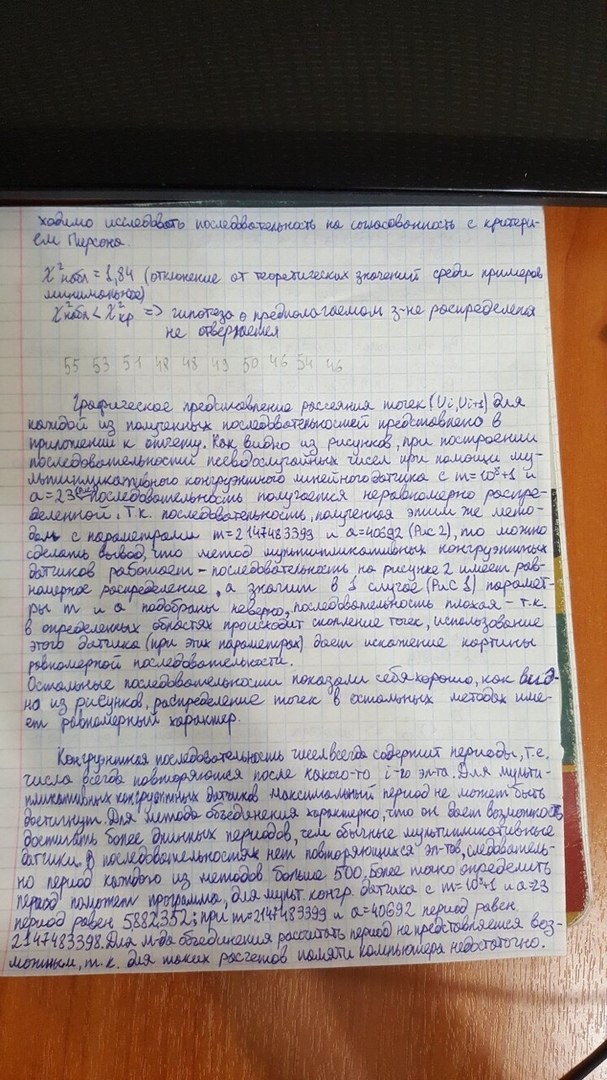 ходимо исследовать последовательность на согласованность с критери-
ем Пирсона.
χ²набл = 1,84 (отклонение от теоретических значений среди примеров
минимальное)
χ²набл < χ²кр => гипотеза о предполагаемом з-не распределения
не отвергается
55 53 51 48 48 49 50 46 54 46
Графическое представление рассеяния точек (Ui, Ui+1) для
каждой из полученных последовательностей представлено в
приложении к отчету. Как видно из рисунков, при построении
последовательности псевдослучайных чисел при помощи му-
льтипликативного конгруэнтного линейного датчика с m=10⁸+1 и
a=23 последовательность получается неравномерно распре-
деленной. Т.к. последовательность, полученная этим же мето-
дом с параметрами m=2147483399 и a=40692 (Рис 2), то можно
сделать вывод, что метод мультипликативных конгруэнтных
датчиков работает – последовательность на рисунке 2 имеет рав-
номерное распределение, а значит в 1 случае (Рис 1) парамет-
ры m и a подобраны неверно, последовательность плохая – т.к.
в определенных областях происходит скопление точек, использование
этого датчика (при этих параметрах) дает искажение картины
равномерной последовательности.
Остальные последовательности показали себя хорошо, как вид-
но из рисунков, распределение точек в остальных методах име-
ет равномерный характер.
Конгруэнтная последовательность чисел всегда содержит периоды, т.е.
числа всегда повторяются после какого-то i-го эл-та. Для мульти-
пликативных конгруэнтных датчиков максимальный период не может быть
достигнут. Для метода объединения характерно, что он дает возможность
достигать более длинных периодов, чем обычные мультипликативные
датчики. В последовательностях нет повторяющихся эл-тов, следователь-
но период каждого из методов больше 500. Более точно определить
период поможет программа, для мульт. конгр. датчика с m=10⁸+1 и a=23
период равен 5882352; при m=2147483399 и a=40692 период равен
2147483398. Для м-да объединения рассчитать период не представляется воз-
можным, т.к. для таких расчетов памяти компьютера недостаточно.